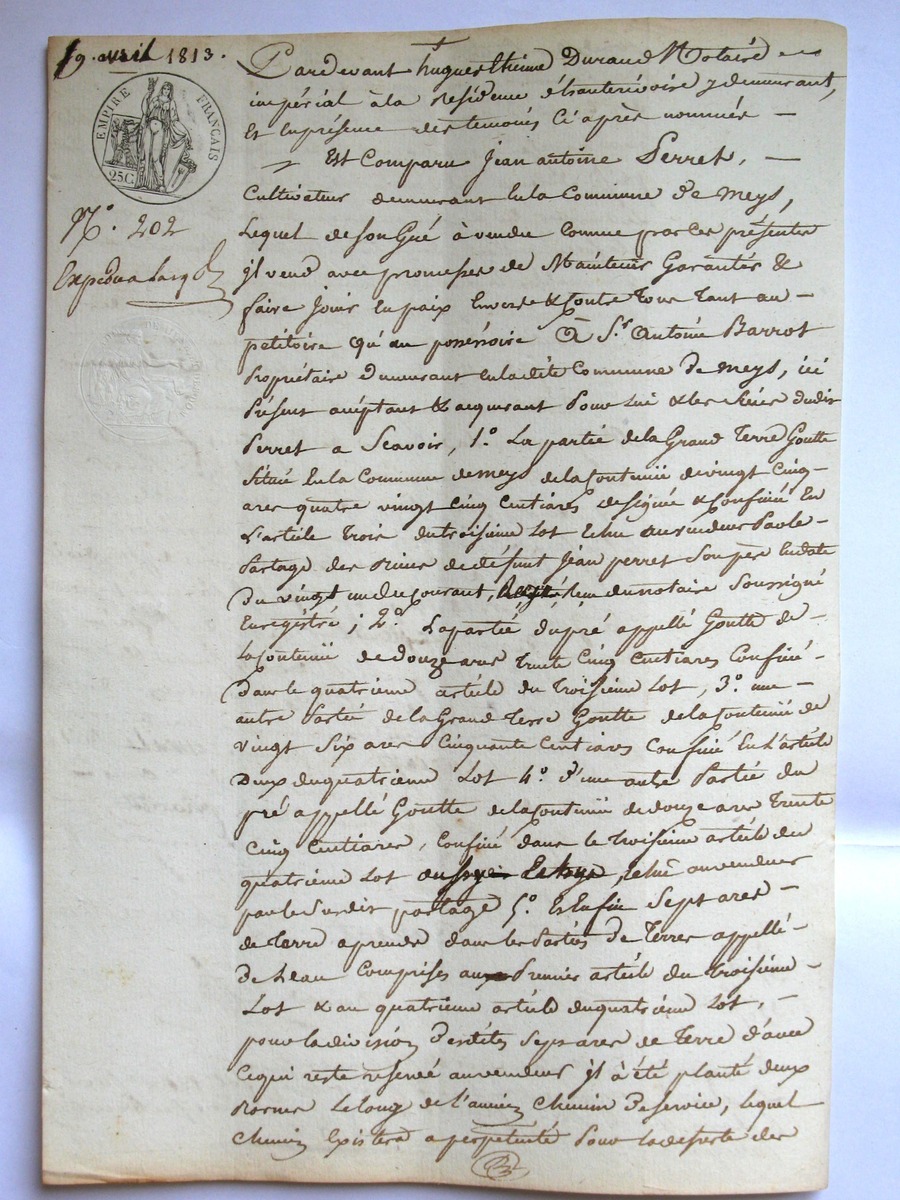 19. avril 1813.
EMPIRE FRANÇAIS
25C
N.° 202
Expédié a lacq
Pardevant hugues Etienne Durand Notaire
impérial à la Residence de demeurant,
Et En présence des temoins Ci après nommés —
Est Comparu Jean antoine Perret, —
Cultivateur demeurant En la Commune De meys,
Lequel de son Gré à vendu comme par Ces présentes
il vend avec promesses de Maintenir Garantir &
faire Jouir En paix Envers & Contre Tous Tant au —
petitoire qu'au possessoire à S.r Antoine Barrot
Propriétaire demeurant En la dite Commune De meys, ici
Présent aceptant & acquerant Pour Lui & les siens dudit
Perret a Scavoir, 1.° La partie de la Grand Terre Goutte
Située En la Commune de meys de la Contenue de vingt Cinq
ares quatre vingt Cinq Centiares designée & Confinée En
L'article Trois du troisieme Lot Echu au vendeur Par le
Partage des Biens de défunt Jean perret Son père En date
Du vingt un du Courant, Reçu du notaire Soussigné
Enregistré ; 2.° La partie du pré appellé Goutte de —
La Contenue de douze ares Trente Cinq Centiares Confiné —
dans le quatrieme article du Troisieme Lot, 3.° une —
autre Partie de la Grand Terre Goutte de la Contenue de
vingt Six ares Cinquante Centiares Confiné En L'article
Deux du quatrieme Lot 4.° d'une autre Partie du
pré appellé Goutte de la Contenue de douze ares Trente
Cinq Centiares, Confiné dans le Troisieme article du
quatrieme Lot Echu au vendeur
par le Susdit partage 5.° Et Enfin Sept ares —
de Terre a prendre dans les Parties De Terres appellé —
De Leau Comprises au Premier article du Troisieme —
Lot & au quatrieme article du quatrieme Lot, —
pour la division Desdites Sept ares de Terre d'avec
Ce qui reste reservé au vendeur il à été planté deux
Bornes Le long de l'ancien Chemin De Service, lequel
Chemin Existera a perpetuité Pour la deserte des